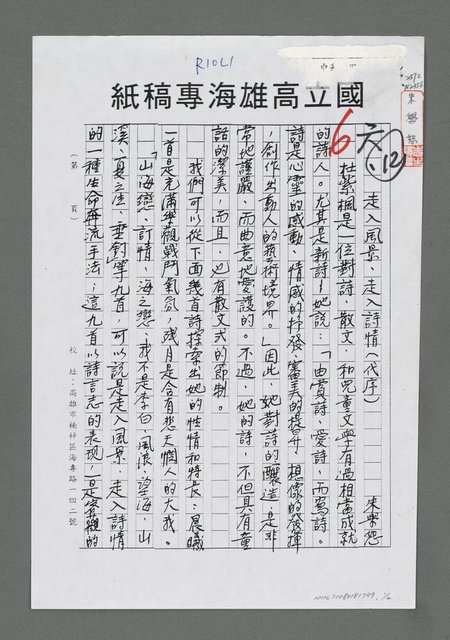 R10L1
國立高雄海專稿紙
6
六、(12)
朱學恕
走入風景、走入詩情(代序)
朱學恕
杜紫楓是一位對詩、散文、和兒童文學有過相當成就
的詩人。尤其是新詩!她說:「由賞詩、愛詩、而寫詩。
詩是心靈的感動、情感的抒發、審美的提升、想像的發揮
,創作出動人的藝術境界。」因此,她對詩的釀造,是非
常地謹嚴,而曲意地愛護的。不過,她的詩,不但具有童
話的潔美,而且,也有散文式的節制。
我們可以從下面幾首詩探索出她的性情和特長:晨曦
一首是充滿樂觀戰鬥氣氛,殘月是含有悲天憫人的大我。
「山海戀、訂情、海之戀、我不是李白、風浪、望海、山
溪、夏之生、垂釣」等九首,可以說是走入風景、走入詩情
的一種生命兩流手法;這九首以詩言志的表現,一旦客觀的
(第 頁)
校址:高雄市楠梓區海專路一四二號
NMTL20080181799, 1/2